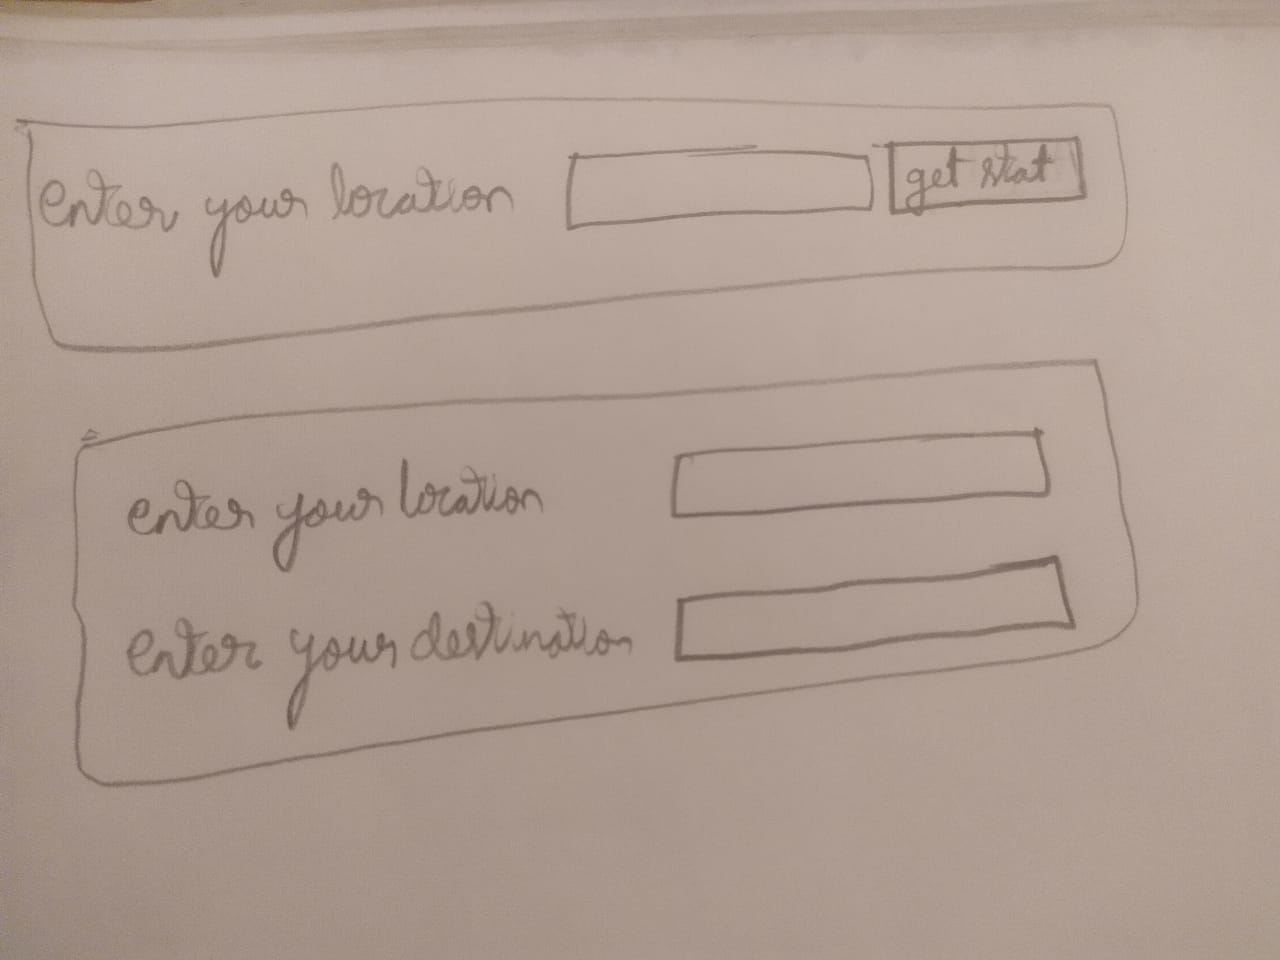 enter your location
get stat
enter your location
enter your destination